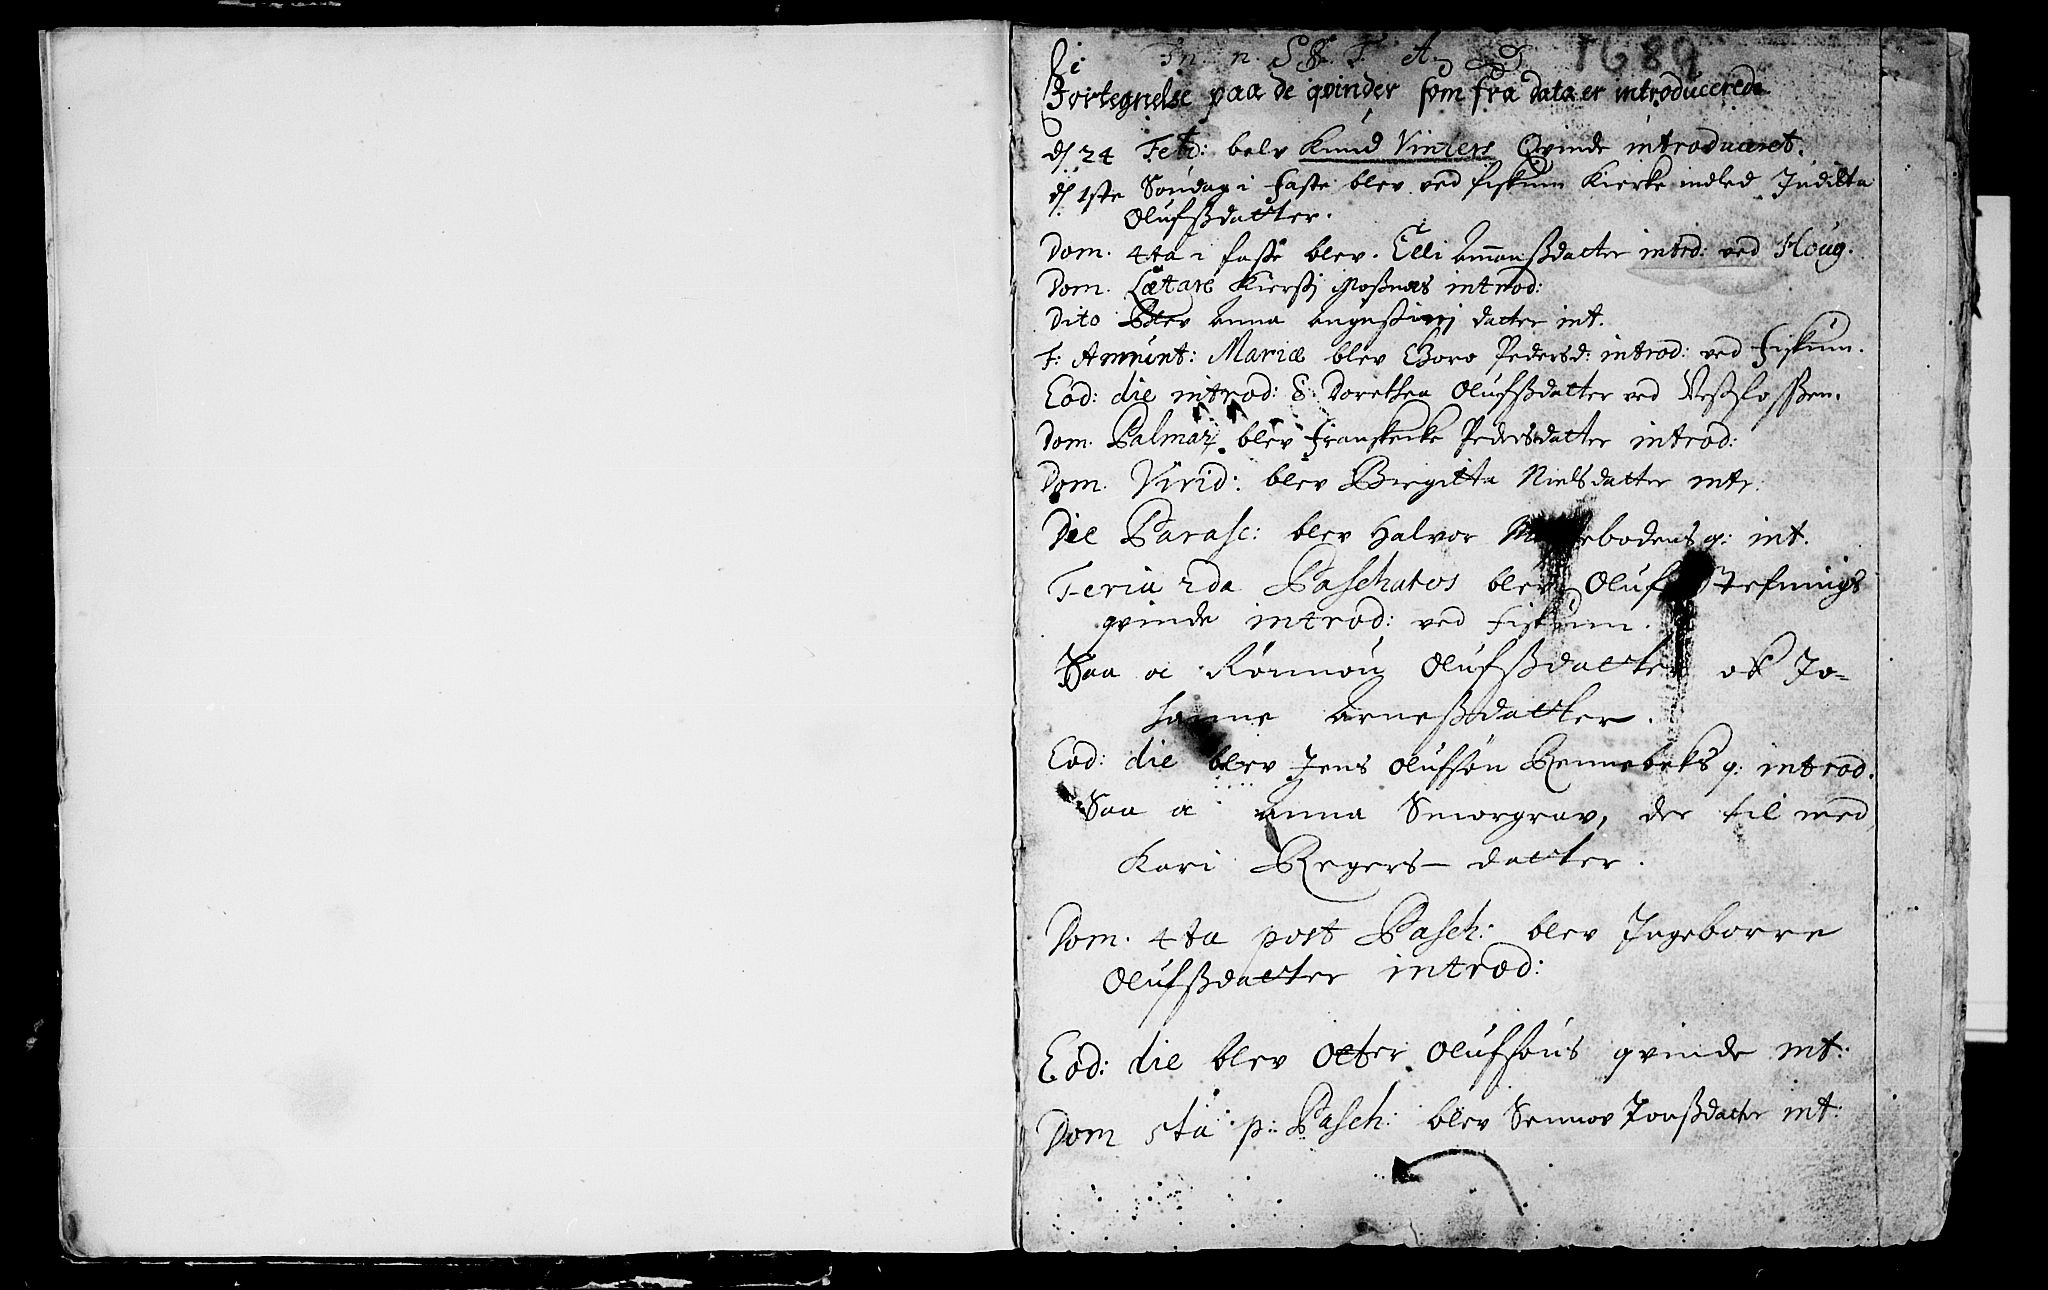 In n. S S. T. A. 1689
Fortegnelse paa de qvinder som fra data er introducerede
d 24 Febr: belv Knud Vinters Qvinde introduceret.
d 1ste Søndag i faste blev ved fiskum Kierke indled Inditta
Olufsdatter.
Dom. 4ta i faste blev. Elli Amonsdatter introd: ved Houg.
Dom. Lætare Kiersti introd:
Dito Blev Anna Augustini datter int.
F: Annunt: Mariæ blev Boro Pedersd: introd: ved Fiskum.
Eod: die introd: S: Dorethea Olufsdatter ved Vestfossen.
Dom. Palmar blev Franskecke Pedersdatter introd:
Dom. Virid: blev Birgitta Nielsdatter intr:
Die Parasc: blev Halvor q: int.
Feria 2da Paschatos blev Oluf Tefnings
qvinde introd: ved Fiskum.
Saa oc Rønnoug Olufsdatter ok Jo-
hanne Arnesdatter.
Eod: die blev Jens Olufsøn Rennebeks q: introd.
Saa oc Anna Smørgrav, der til med
Kari Regers-datter.
Dom. 4ta post Pasch: blev Ingeborre
Olufsdatter introd:
Eod: die blev Otter Olufsøns qvinde int:
Dom 5ta p: Pasch: blev Sennov Jonsdatter int: